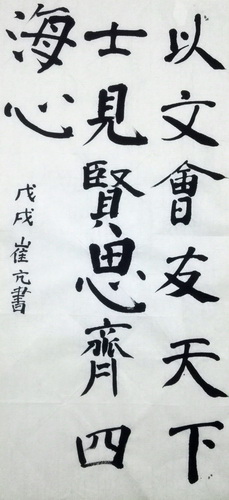 以文會友天下
士見賢思齊四
海心
戊戌崔亢書